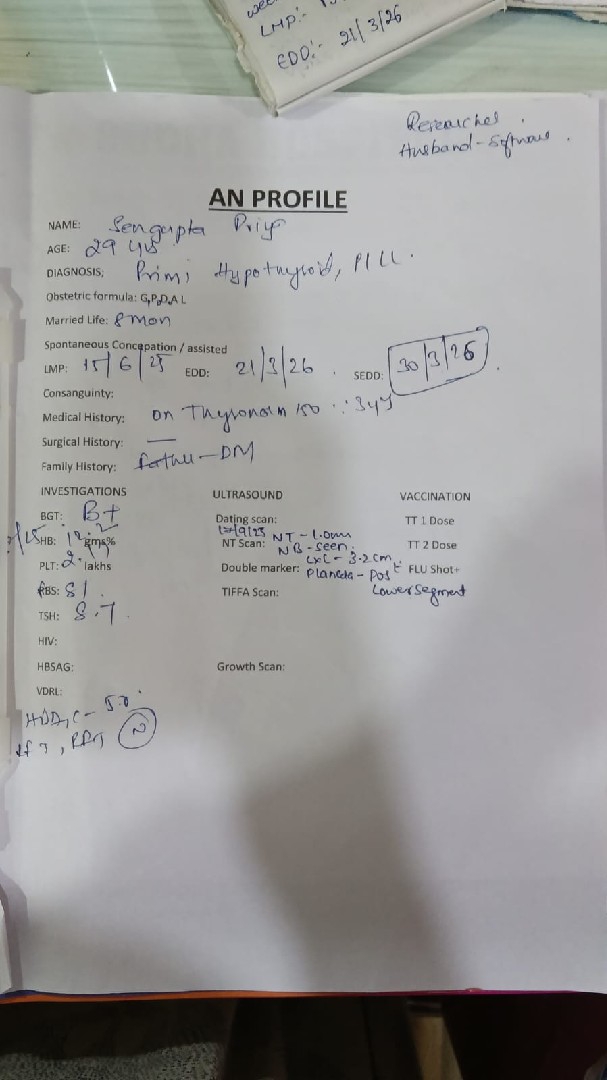 LMP:-
EDD:- 21/3/26
Researcher.
Husband - Software.
AN PROFILE
NAME: Sengupta Priya
AGE: 29 yrs
DIAGNOSIS: Primi, Hypothyroid,
Obstetric formula: G,P,D,A L
Married Life: 8 mon
Spontaneous Concepation / assisted
LMP: 15/6/25 EDD: 21/3/26. SEDD: 30/3/26.
Consanguinty:
Medical History: on Thyronorm 150 ∵ 3 yrs
Surgical History: —
Family History: - DM
INVESTIGATIONS ULTRASOUND VACCINATION
BGT: B+ Dating scan: TT 1 Dose
HB: gms% NT Scan: NT - 1.0mm TT 2 Dose
NB - seen.
PLT: 2. lakhs Double marker: CxL - 3.2cm FLU Shot+
Placenta - Post
RBS: 81. TIFFA Scan: Lower Segment
TSH: 8.7.
HIV:
HBSAG: Growth Scan:
VDRL:
LFT, RFT N